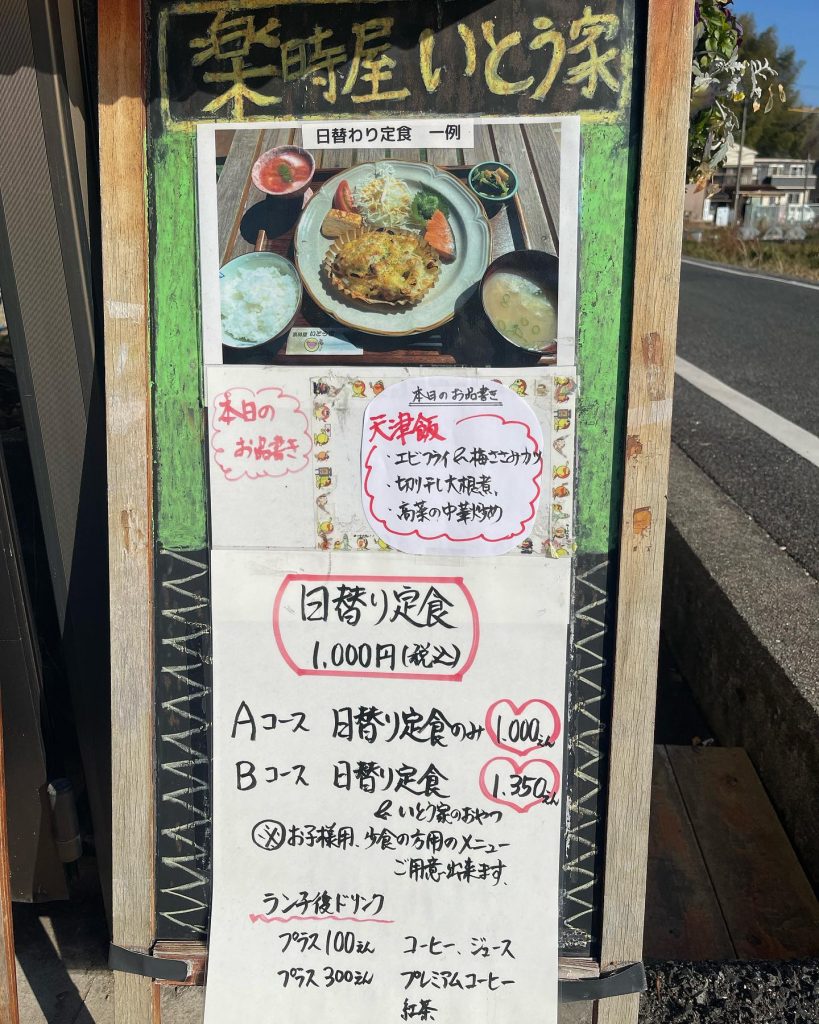 楽時屋 いとう家
日替わり定食 一例
本日の
お品書き
本日のお品書き
天津飯
・エビフライ&梅ささみカツ
・切り干し大根煮、
・高菜の中華炒め
日替り定食
1,000円(税込)
Aコース 日替り定食のみ 1,000えん
Bコース 日替り定食 1,350えん
& いとう家のおやつ
※お子様用、少食の方用のメニュー
ご用意出来ます、
ランチ後ドリンク
プラス100えん コーヒー、ジュース
プラス300えん プレミアムコーヒー
紅茶